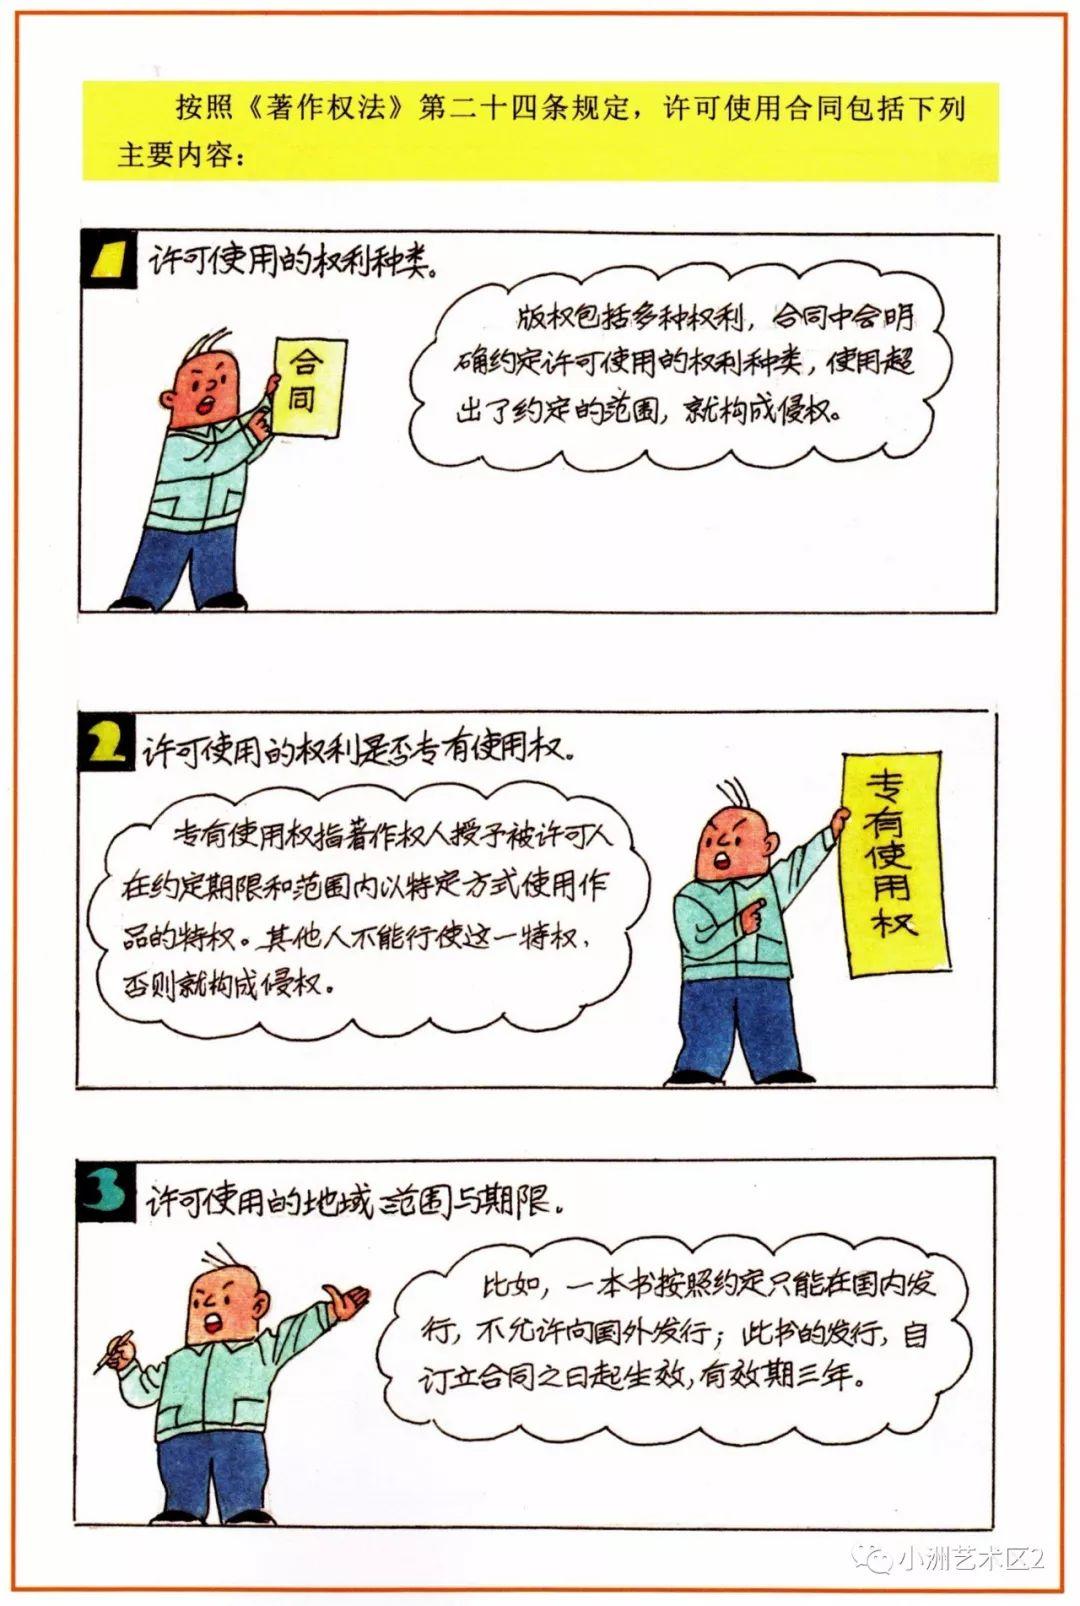 按照《著作权法》第二十四条规定，许可使用合同包括下列
主要内容：
1
许可使用的权利种类。
版权包括多种权利，合同中会明
确约定许可使用的权利种类，使用超
出了约定的范围，就构成侵权。
合
同
2
许可使用的权利是否专有使用权。
专有使用权指著作权人授予被许可人
在约定期限和范围内以特定方式使用作
品的特权。其他人不能行使这一特权，
否则就构成侵权。
专
有
使
用
权
3
许可使用的地域范围与期限。
比如，一本书按照约定只能在国内发
行，不允许向国外发行；此书的发行，自
订立合同之日起生效，有效期三年。
小洲艺术区2